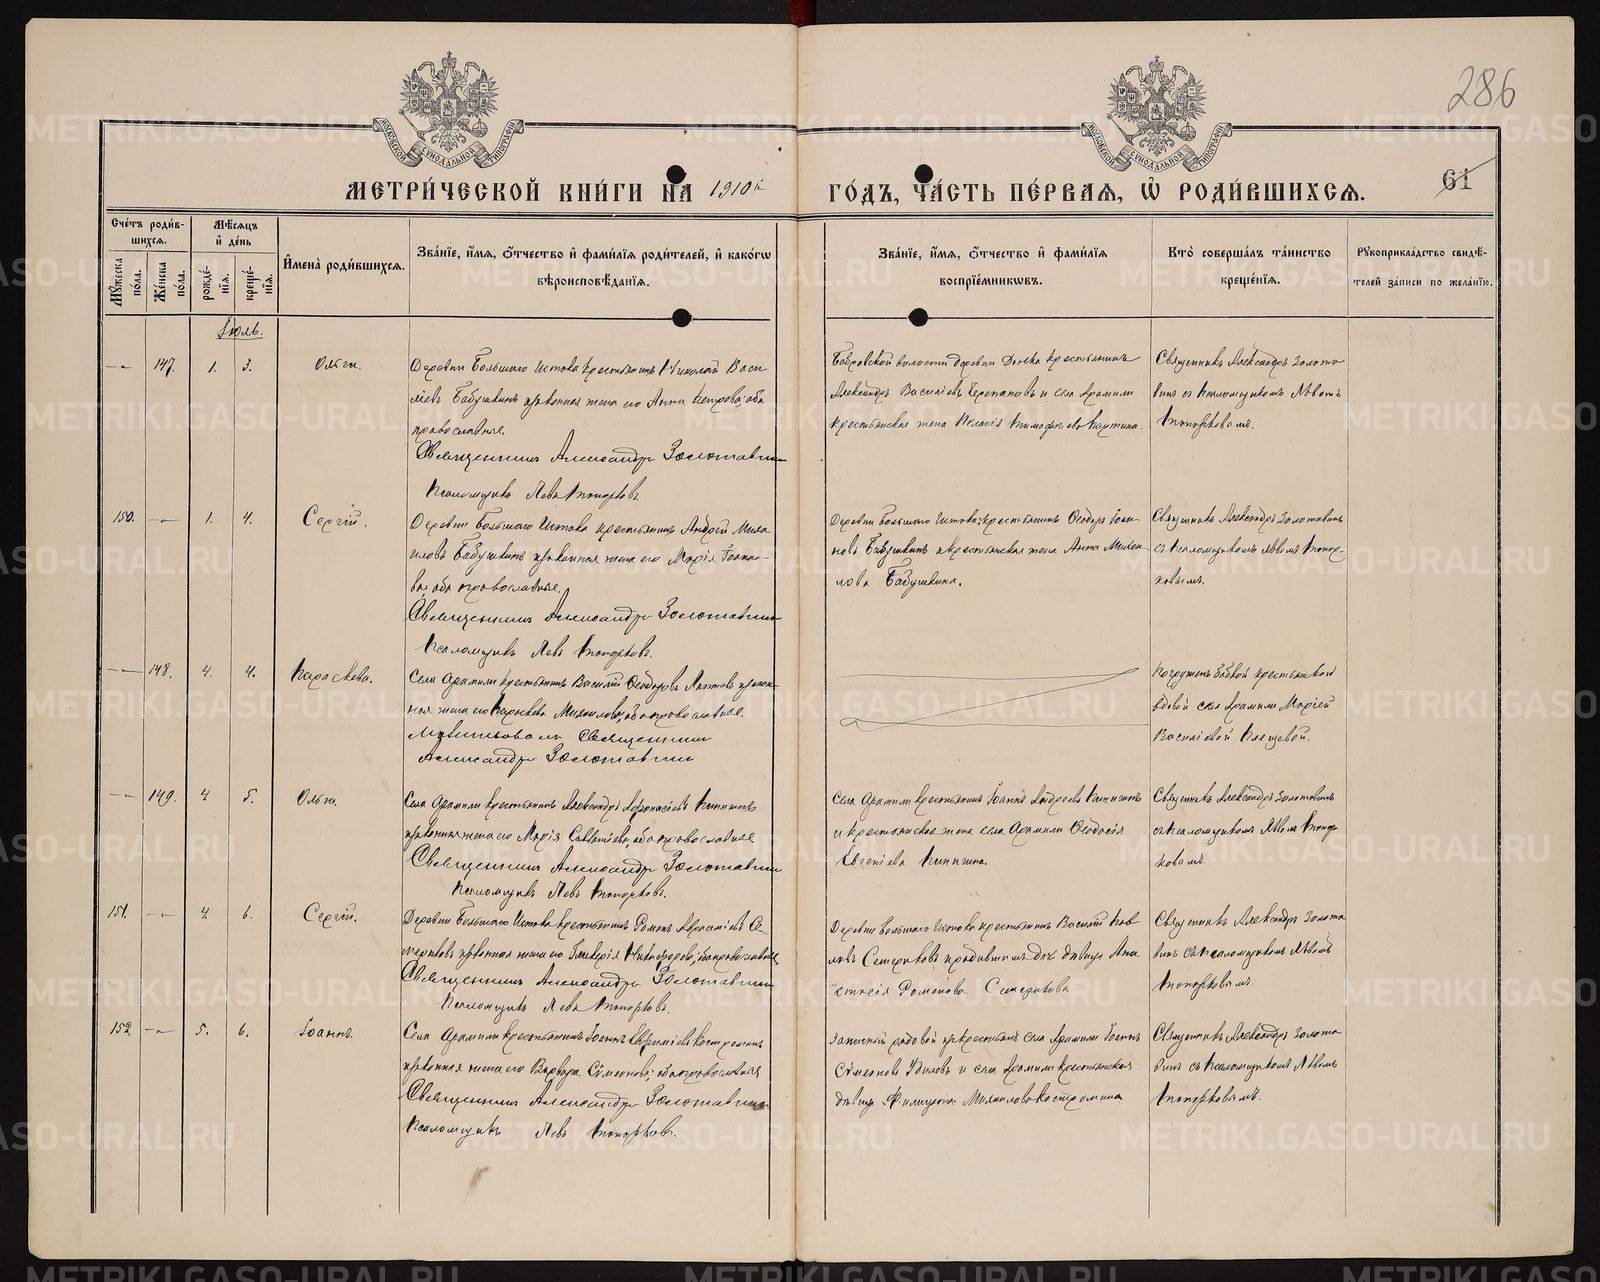 286
МОСКОВСКОЙ СУНОДАЛЬНОЙ ТИПОГРАФІИ
МОСКОВСКОЙ СУНОДАЛЬНОЙ ТИПОГРАФІИ
МЕТРИ́ЧЕСКОЙ КНИ́ГИ НА 1910й ГО́ДЪ, ЧА́СТЬ ПЕ́РВАЯ, Ѡ҆ РОДИ́ВШИХСЯ.
61
Сче́тъ роди́в-
шихся.
Мꙋ́жеска по́ла.
Же́нска по́ла.
Мѣ́сяцъ
и҆ де́нь
рожде́-
нїя.
креще́-
нїя.
И҆мена̀ роди́вшихся.
Зва́нїе, и҆́мя, ѻ҆́тчество и҆ фами́лїя роди́телей, и҆ како́гѡ
вѣроисповѣ́данїя.
Зва́нїе, и҆́мя, ѻ҆́тчество и҆ фами́лїя
воспрїе́мникѡвъ.
Кто̀ соверша́лъ та́инство
креще́нїя.
Рꙋкоприкла́дство свидѣ́-
телей за́писи по жела́нїю.
Іюль.
147. 1. 3. Ольги.
Деревни Большого Истока крестьянинъ Николай Васи
ліевъ Бабушкинъ и законная жена его Анна Петрова; оба
православные.
Священникъ Александръ Золотавин
Псаломщикъ Левъ Топорковъ.
Бобровской волости деревни крестьянинъ
Александръ Василіевъ Черепановъ и села Арамили
крестьянская жена Пелагія
Священникъ Александръ Золота
винъ съ Псаломщикомъ Львомъ
Топорковымъ.
150. 1. 4. Сергій.
Деревни Большого Истока крестьянинъ Андрей Миха
иловъ Бабушкинъ и законная жена его Марія Іоанно-
ва; оба православные.
Священникъ Александръ Золотавин
Псаломщикъ Левъ Топорковъ.
Деревни Большого Истока: крестьянинъ Ѳеодоръ Іоан-
новъ Бабушкинъ и крестьянская жена Анна Михаи
лова Бабушкина.
Священникъ Александръ Золотавинъ
съ Псаломщикомъ Львомъ Топор-
ковымъ.
148. 4. 4. Параскева.
Села Арамили крестьянинъ Василій Ѳеодоровъ Лаптевъ и закон-
ная жена его Параскева Михаилова; оба православные.
Священникъ
Александръ Золотавин
Погружена бабкой крестьянской
вдовой села Арамили Маріей
Василіевой Клещевой.
149. 4. 5. Ольги.
Села Арамили крестьянинъ Александръ Аѳанасіевъ
и законная жена его Марія Савватіева; оба православные
Священникъ Александръ Золотавин
Псаломщикъ Левъ Топорковъ.
Села Арамили крестьянинъ Іоаннъ Андреевъ
и крестьянская жена села Арамили Ѳеодосія
Евгеніева
Священникъ Александръ Золотавинъ
съ Псаломщикомъ Львомъ Топор
ковымъ
151. 4. 6. Сергій.
Деревни Большого Истока крестьянинъ Романъ Авраміевъ Се
мериковъ и законная жена его Гликерія Никифорова; оба православные
Священникъ Александръ Золотавин
Псаломщикъ Левъ Топорковъ.
Деревни Большого Истока крестьянинъ Василій Пав
ловъ Семериковъ, и родившихъ дочь дѣвица Ана
стасія Романова Семерикова
Священникъ Александръ Золота
винъ съ Псаломщикомъ Львомъ
Топорковымъ.
152. 5. 6. Іоаннъ.
Села Арамили крестьянинъ Іоаннъ Евфиміевъ Костроминъ
и законная жена его Варвара Симеонова; оба православные
Священникъ Александръ Золотавин
Псаломщикъ Левъ Топорковъ.
Запасный рядовой изъ крестьянъ села Арамили Іоаннъ
Симеоновъ и села Арамили крестьянская
дѣвица Михаилова Костромина
Священникъ Александръ Золота
винъ съ Псаломщикомъ Львомъ
Топорковымъ.
METRIKI.GASO-URAL.RU